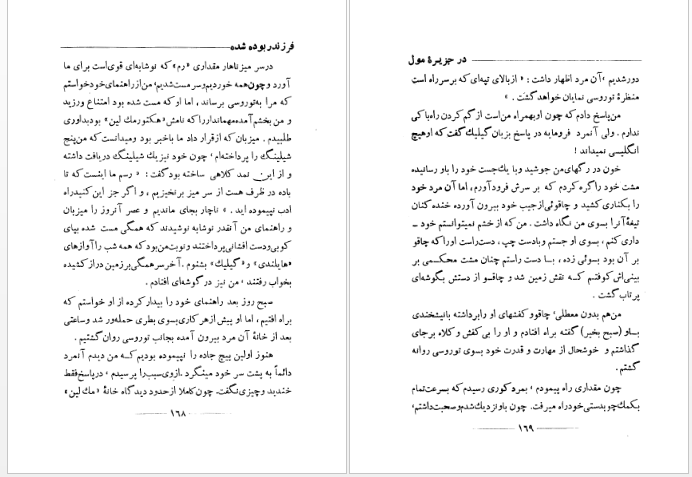 فرزند ربوده شده
در سر میز ناهار مقداری «رم» که نوشابه‌ای قوی است برای ما
آورد و چون همه خوردیم و سرمست شدیم، من از راهنمای خود خواستم
که مرا به توروسی برساند، اما او که مست شده بود امتناع ورزید
و من بخشم آمده مهماندار را که نامش «هکتور مك لین» بود بداوری
طلبیدم. میزبان که از قرار داد ما باخبر بود ومیدانست که من پنج
شیلینگ را پرداخته‌ام، چون خود نیز یك شیلینگ دریافت داشته
و از این نمد کلاهی ساخته بود گفت: «رسم ما اینست که تا
باده در ظرف هست از سر میز برنخیزیم، و اگر جز این کنید راه
ادب نپیموده اید.» ناچار بجای ماندیم و عصر آنروز را میزبان
و راهنمای من آنقدر نوشابه نوشیدند که همگی مست شده بپای
کوبی و دست افشانی پرداختند و نوبت من بود که همه شب را آوازهای
«هایلندی» و «گیلیك» بشنوم. آخر سر همگی بر زمین دراز کشیده
بخواب رفتند، من نیز در گوشه‌ای افتادم.
صبح روز بعد راهنمای خود را بیدار کرده از او خواستم که
براه افتیم، اما او پیش از هر کاری بسوی بطری حمله‌ور شد و ساعتی
بعد از خانهٔ آن مرد بیرون آمده بجانب توروسی روان گشتیم.
هنوز اولین پیچ جاده را نپیموده بودیم که من دیدم آنمرد
دائماً به پشت سر خود مینگرد. ازوی سبب را پرسیدم، در پاسخ فقط
خندید و چیزی نگفت. چون کاملا از حدود دیدگاه خانهٔ «مك لین»
۱۶۸
در جزیرهٔ مول
دور شدیم، آن مرد اظهار داشت: «از بالای تپه‌ای که بر سر راه است
منظرهٔ توروسی نمایان خواهد گشت.»
من پاسخ دادم که چون او بهمراه من است از گم کردن راه باکی
ندارم. ولی آنمرد فرومایه در پاسخ بزبان گیلیك گفت که او هیچ
انگلیسی نمیداند!
خون در رگهای من جوشید و با یك جست خود را باو رسانیده
مشت خود را گره کردم که بر سرش فرود آورم، اما آن مرد خود
را بکناری کشید و چاقوئی از جیب خود بیرون آورده خنده کنان
تیغهٔ آنرا بسوی من نگاه داشت. من که از خشم نمیتوانستم خود ــ
داری کنم، بسوی او جستم و با دست چپ، دست راست او را که چاقو
بر آن بود بسوئی زده، با دست راستم چنان مشت محکمی بر
بینی‌اش کوفتم که نقش زمین شد و چاقو از دستش بگوشه‌ای
پرتاب گشت.
من هم بدون معطلی، چاقو و کفشهای او را برداشته با نیشخندی
باو (صبح بخیر) گفته براه افتادم و او را بی کفش و کلاه برجای
گذاشتم و خوشحال از مهارت و قدرت خود بسوی توروسی روانه
گشتم.
چون مقداری راه پیمودم، بمرد کوری رسیدم که بسرعت تمام
بکمك چوبدستی خود راه میرفت. چون باو نزدیك شدم و صحبت داشتم،
۱۶۹